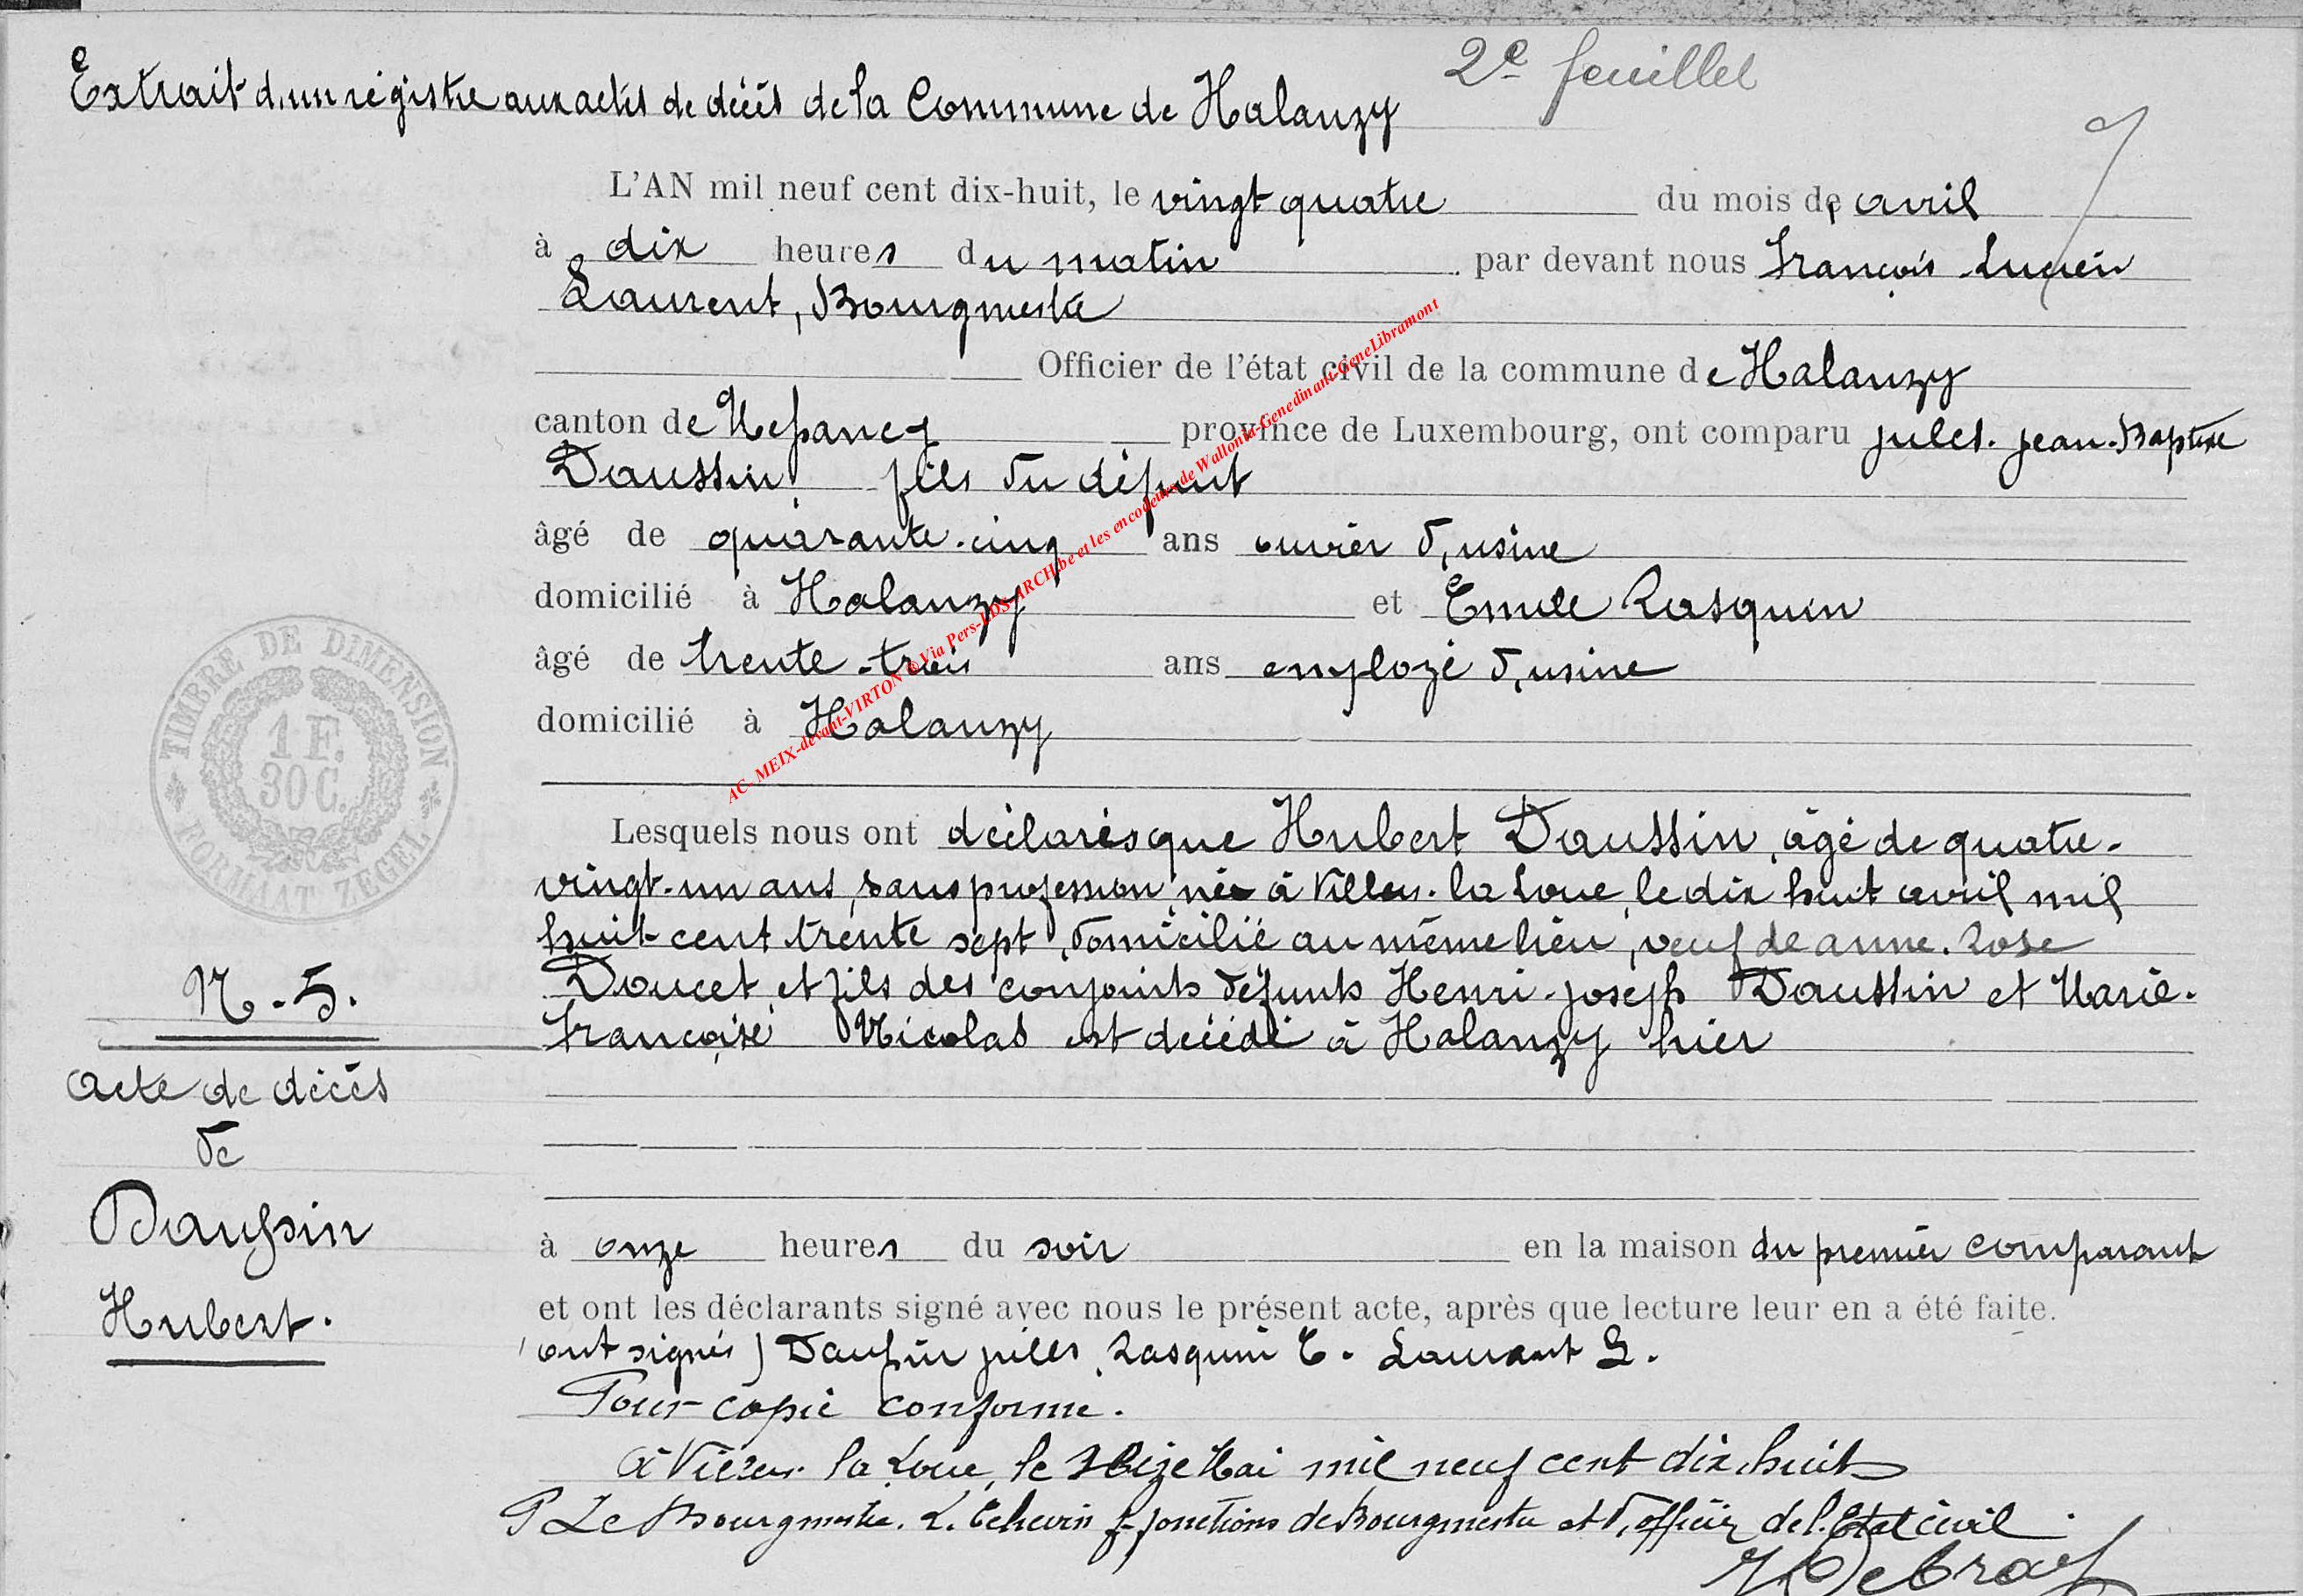 2e feuillet
Extrait d'un registre aux actes de décès de la Commune de Halanzy
L'AN mil neuf cent dix-huit, le vingt quatre du mois de avril
à dix heures du matin par devant nous François Lucien
Laurent, Bourgmestre
Officier de l'état civil de la commune de Halanzy
canton de Messancy province de Luxembourg, ont comparu Jules-Jean-Baptiste
Daussin, fils du défunt
âgé de quarante-cinq ans ouvrier d'usine
domicilié à Halanzy et Emile Rasquin
âgé de trente-trois ans employé d'usine
domicilié à Halanzy
AC-MEIX-devant-VIRTON © Via Pers-LDS-ARCH.be et les encodeurs de Wallonia-Genedinant-GeneLibramont
TIMBRE DE DIMENSION
1 F.
30 C.
FORMAAT ZEGEL
Lesquels nous ont déclarés que Hubert Daussin, âgé de quatre-
vingt-un ans, sans profession, né à Villers-la-Loue, le dix huit avril mil
huit cent trente sept, domicilié au même lieu, veuf de Anne-Rose
Doucet, et fils des conjoints défunts Henri-Joseph Daussin et Marie-
Françoise Nicolas est décédé à Halanzy hier
N-5.
Acte de décès
de
Daussin
Hubert.
à onze heures du soir en la maison du premier comparant
et ont les déclarants signé avec nous le présent acte, après que lecture leur en a été faite.
(ont signés) Daussin Jules, Rasquin E. Laurent L.
Pour copie conforme.
à Villers-la-Loue, le seize Mai mil neuf cent dix huit
P Le Bourgmestre. L'Echevin ff fonctions de Bourgmestre et d'officier de l'Etat civil.